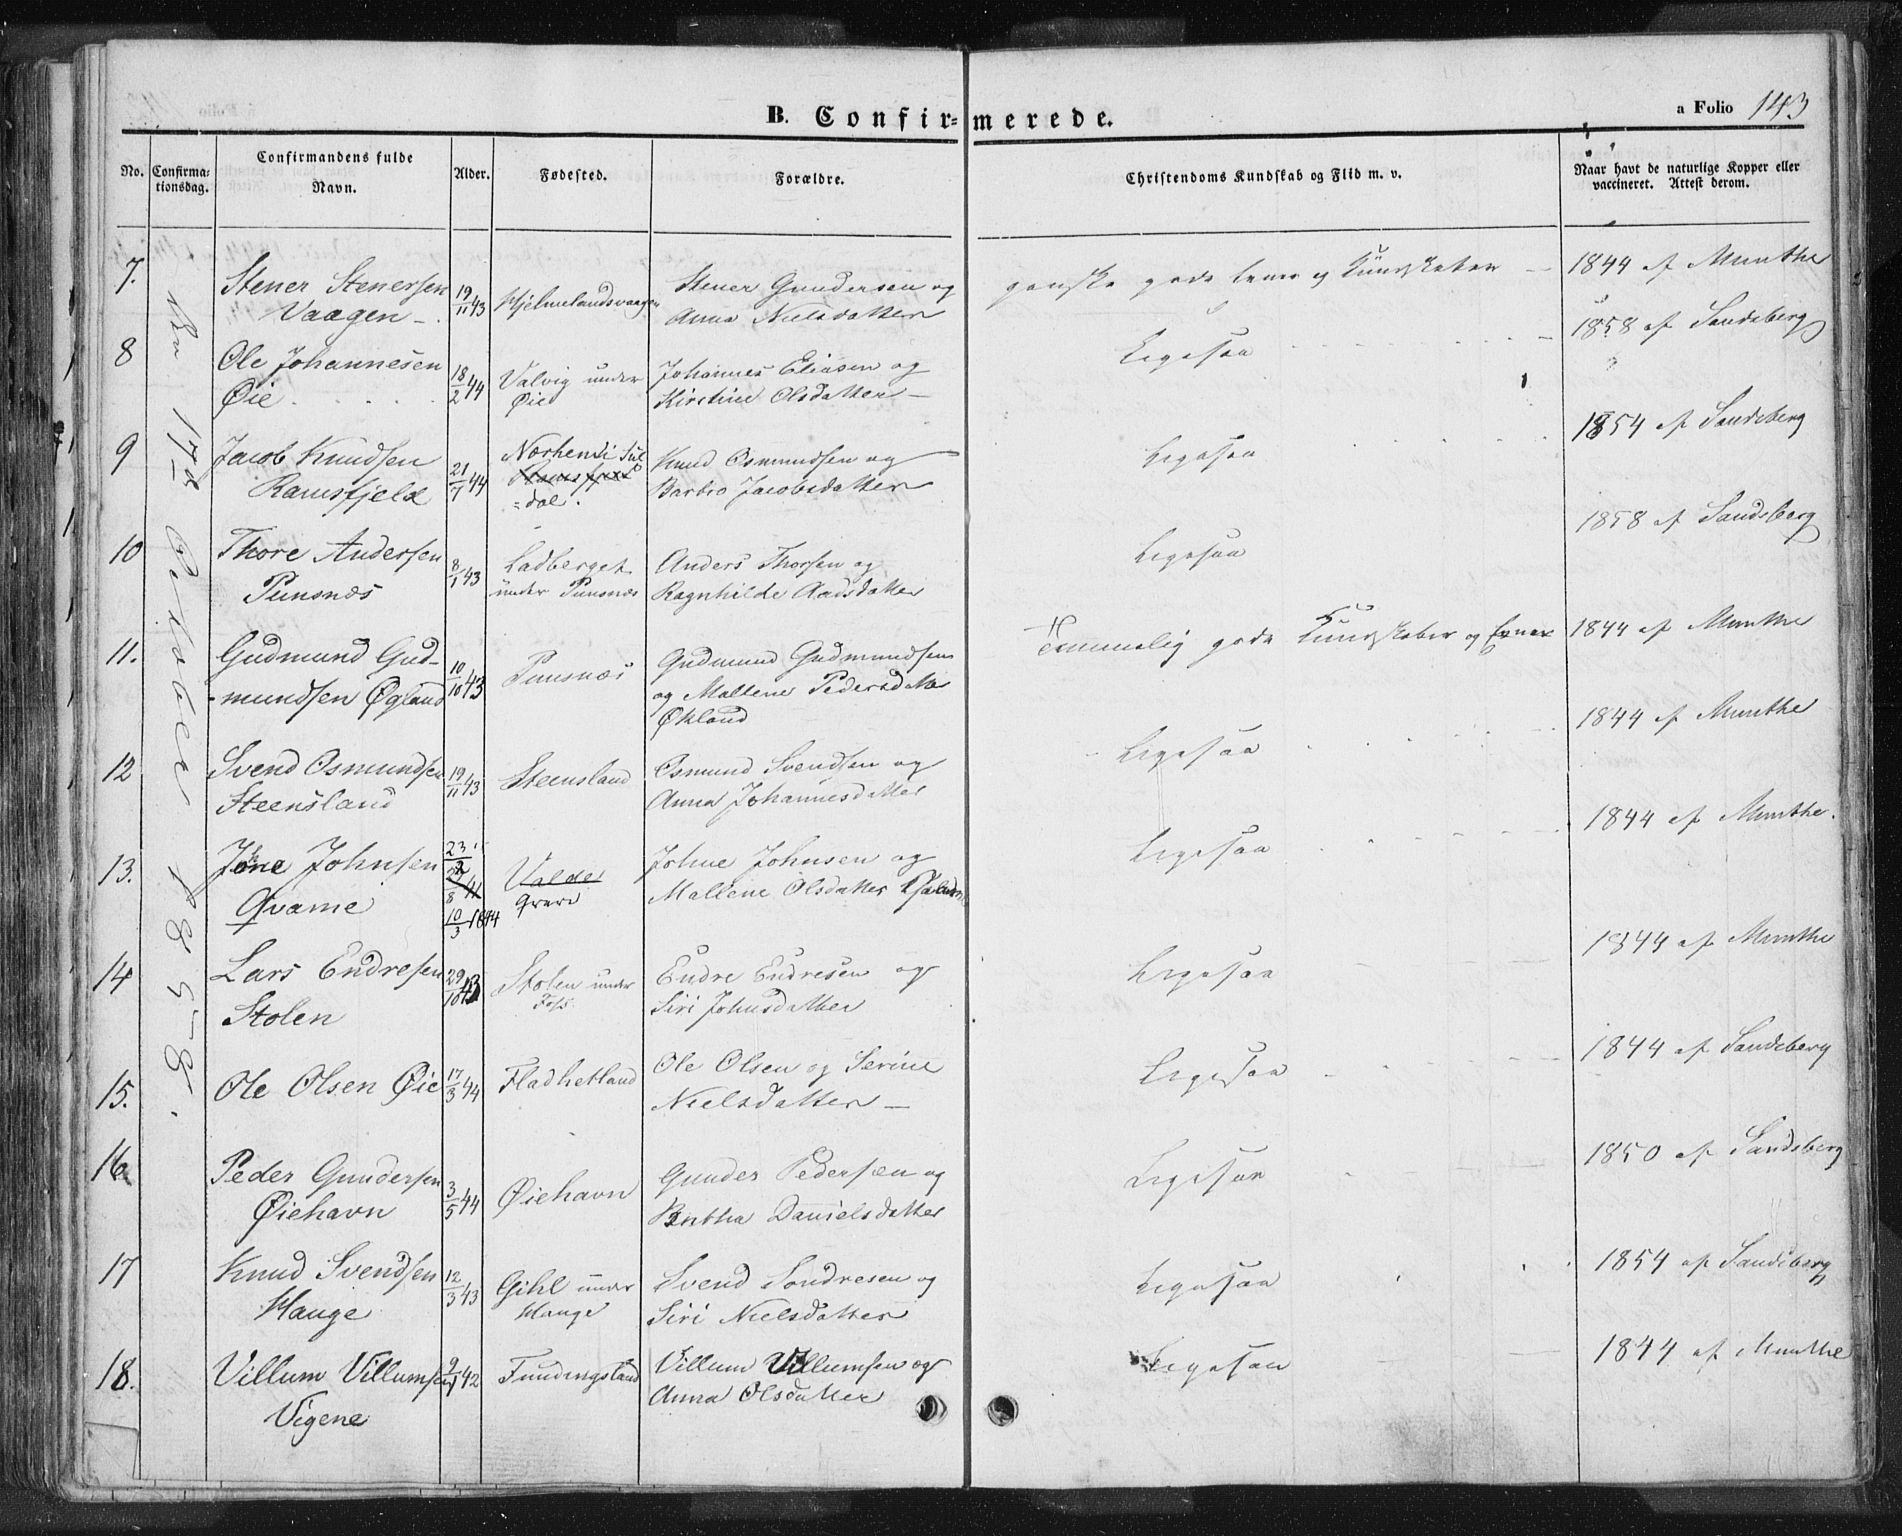 B. Confirmerede.
a Folio 143
No.
Confirmationsdag.
Confirmandens fulde Navn.
Alder.
Fødested.
Forældre.
Christendoms Kundskab og Flid m. v.
Naar havt de naturlige Kopper eller vaccineret. Attest derom.
Den 17de October 1858.
7. Stener Stenersen 19/11 43 Hjelmelandsvaagen Stener Gundersen og ganske gode Evner og Kundskaber 1844 af Munthe
Vaagen Anna Nielsdatter
8 Ole Johannesen 18/2 44 Valvig under Johannes Eliasen og Ligesaa 1858 af Sandsberg
Øie Øie Kirstine Olsdatter
9 Jacob Knudsen 21/7 44 Norheim i Sul Knud Osmundsen og Ligesaa 1854 af Sandsberg
Ramsfjeld =dal. Barbro Jacobsdatter
10 Thore Andersen 8/1 43 Ladberget Anders Thorsen og Ligesaa 1858 af Sandsberg
Punsnæs under Punsnæs Ragnhilde Aadsdatter
11. Gudmund Gud- 10/10 43 Punsnæs Gudmund Gudmundsen Temmelig gode Kundskaber og Evner 1844 af Munthe
-mundsen Øgland og Mallene Pedersdatter
Økland
12 Svend Osmundsen 19/11 43 Steensland Osmund Svendsen og Ligesaa 1844 af Munthe
Steensland Anna Johannesdatter
13. Jone Johnsen 23/2 Valde Johne Johnsen og Ligesaa 1844 af Munthe.
Qvame 10/3 1844 Mallene Olsdatter
14 Lars Endresen 29/10 43 Stolen under Endre Endresen og Ligesaa 1844 af Munthe
Stolen Foss. Siri Johnsdatter
15. Ole Olsen Øie 17/3 44 Fladhetland Ole Olsen og Serine Ligesaa 1844 af Sandsberg
Nielsdatter
16 Peder Gundersen 3/5 44 Øiehavn Gunder Pedersen og Ligesaa 1850 af Sandsberg
Øiehavn Bertha Danielsdatter
17 Knud Svendsen 12/3 43 Gihl under Svend Sondresen og Ligesaa 1854 af Sandsberg
Hauge Hauge Siri Nielsdatter
18. Villum Villumsen 9/1 42 Fundingsland Villum Villumsen og Ligesaa 1844 af Munthe
Vigene Anna Olsdatter